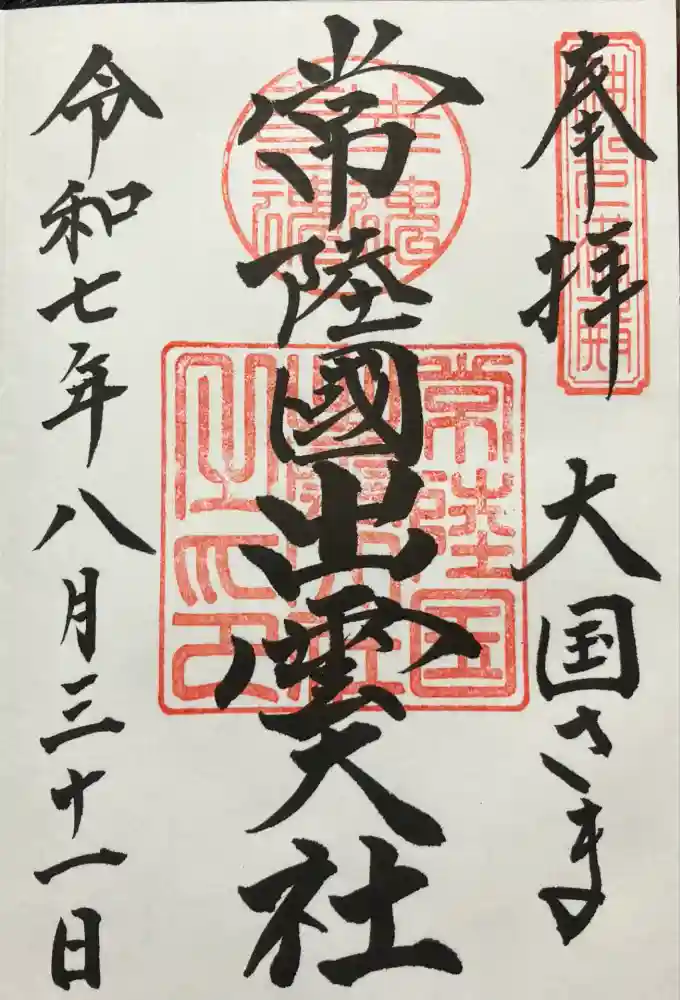 奉拝
大国さま
常陸國出雲大社
常陸国
出雲大社
之印
幸魂
奇魂
令和七年八月三十一日